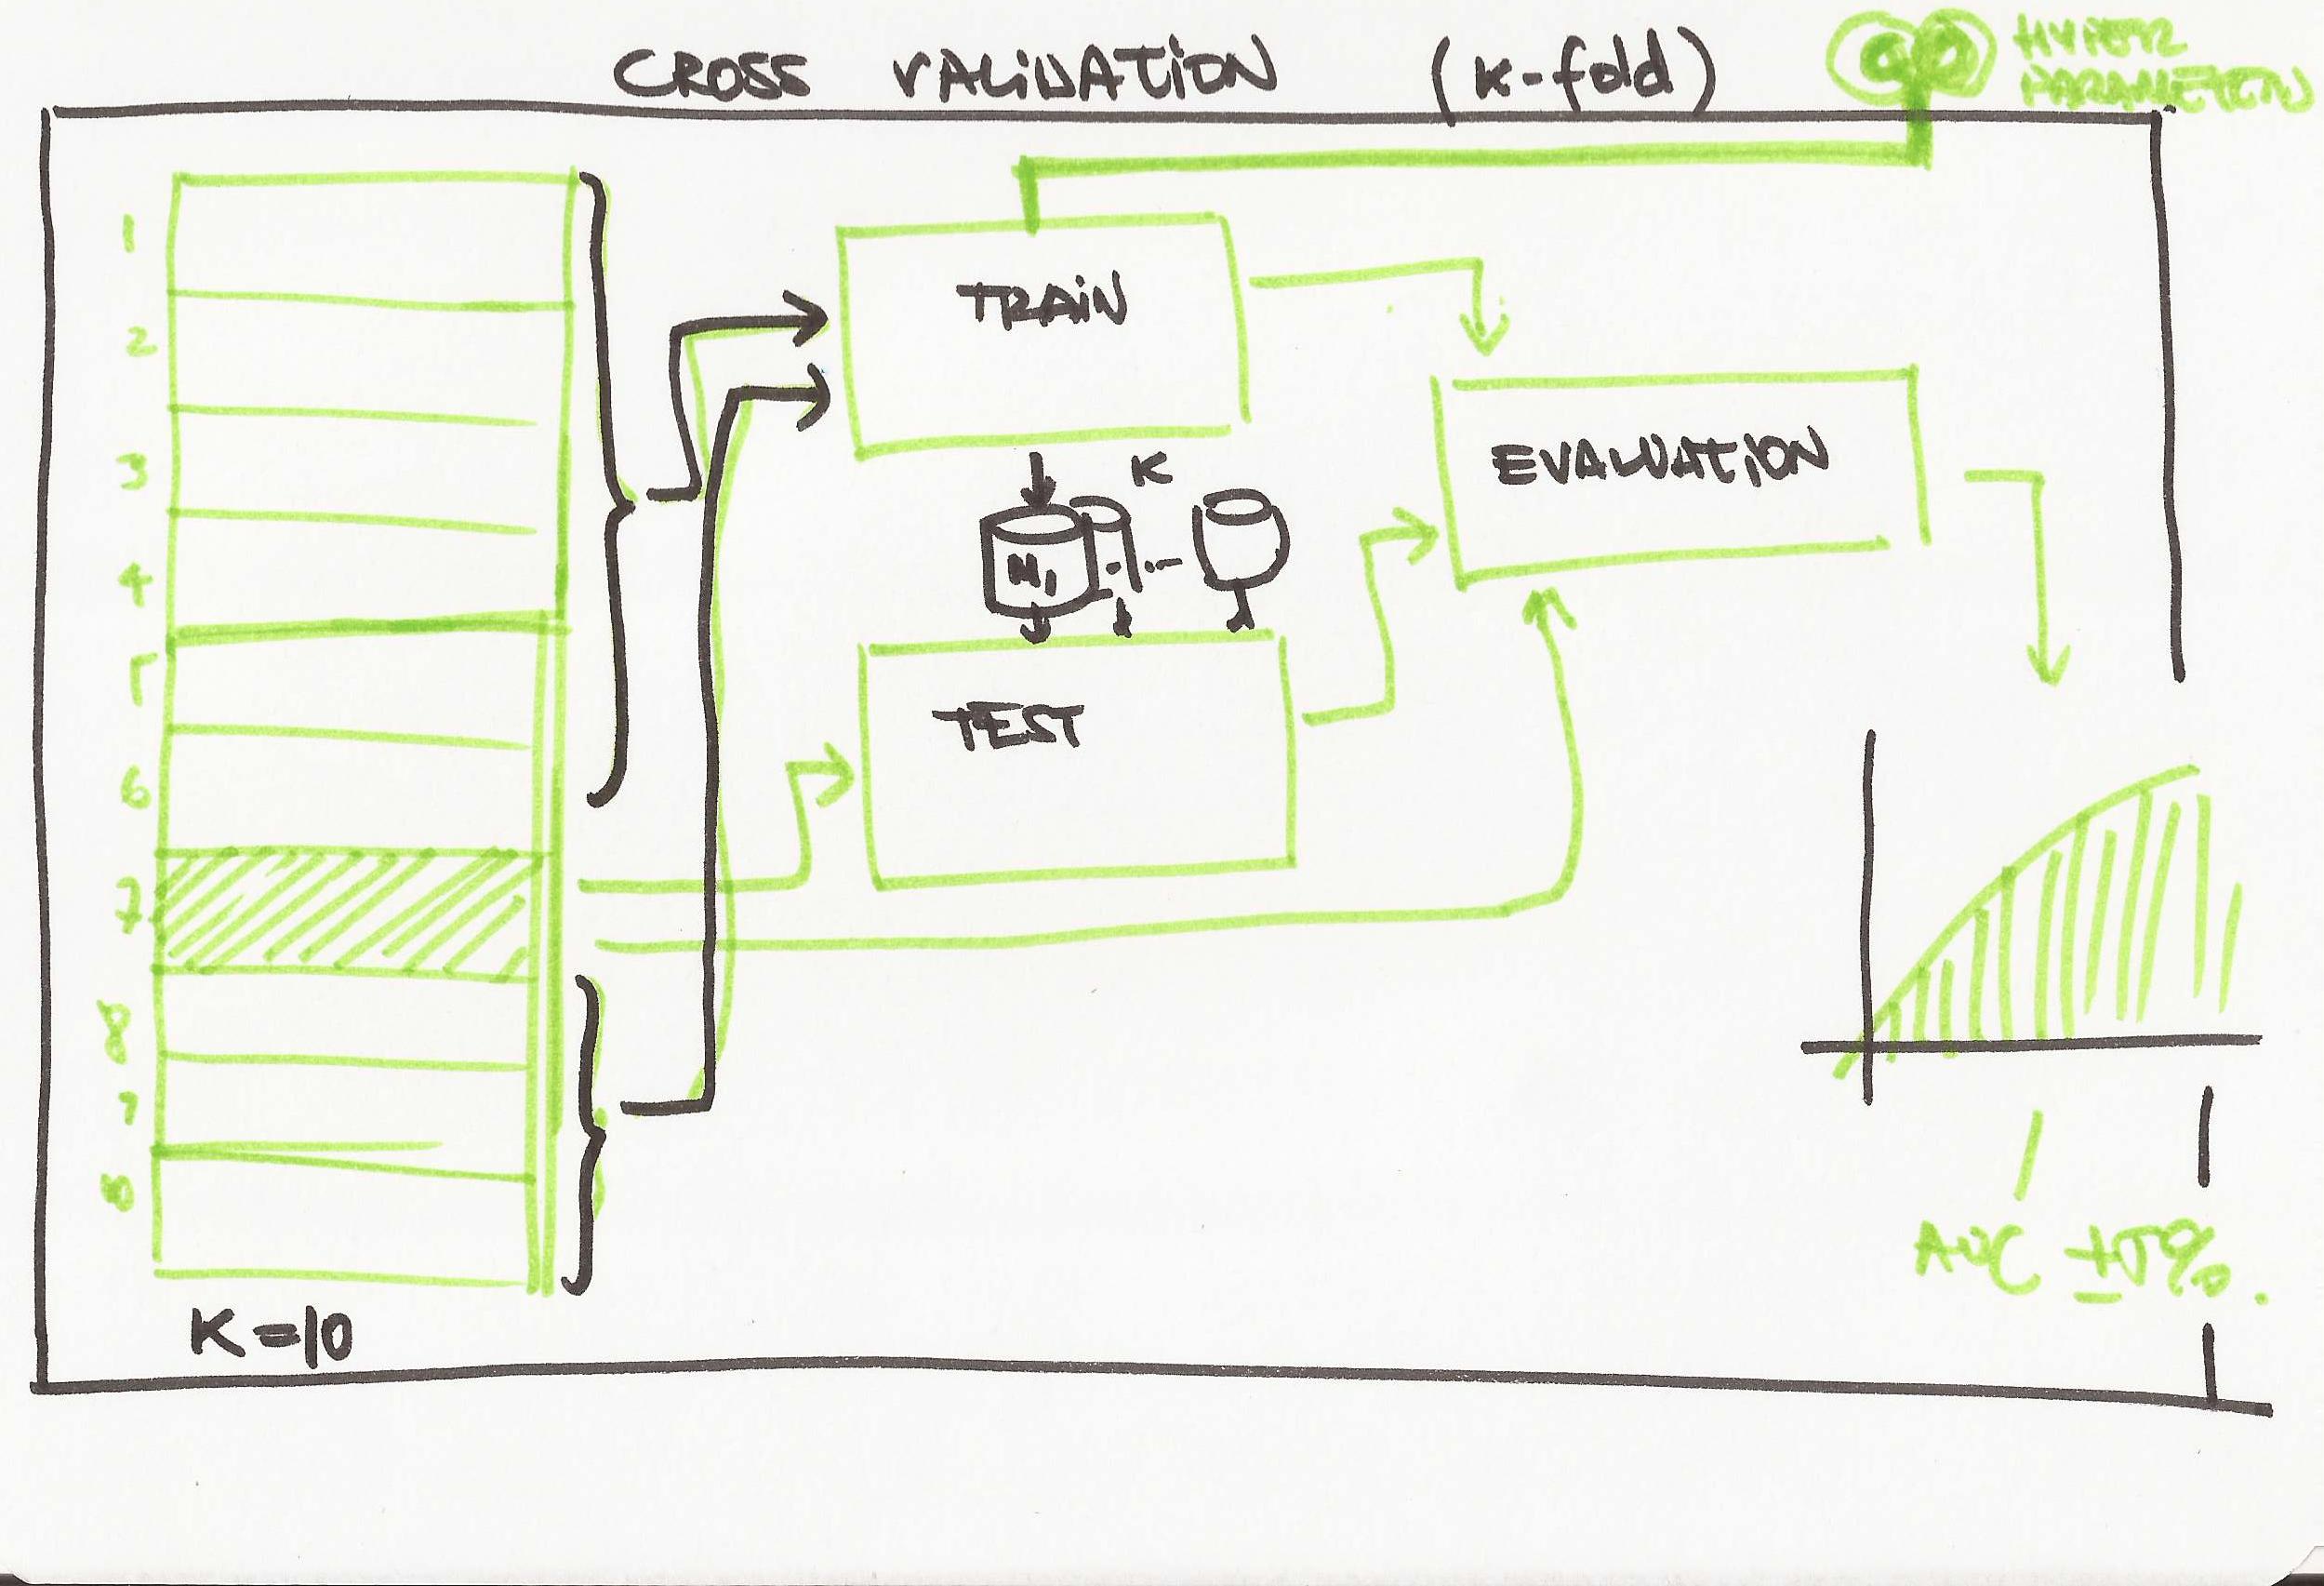 CROSS VALIDATION (K-fold)
HYPER
PARAMETERS
1
2
3
4
5
6
7
8
7
8
K=10
TRAIN
K
M1
...
TEST
EVALUATION
AUC ±5%.